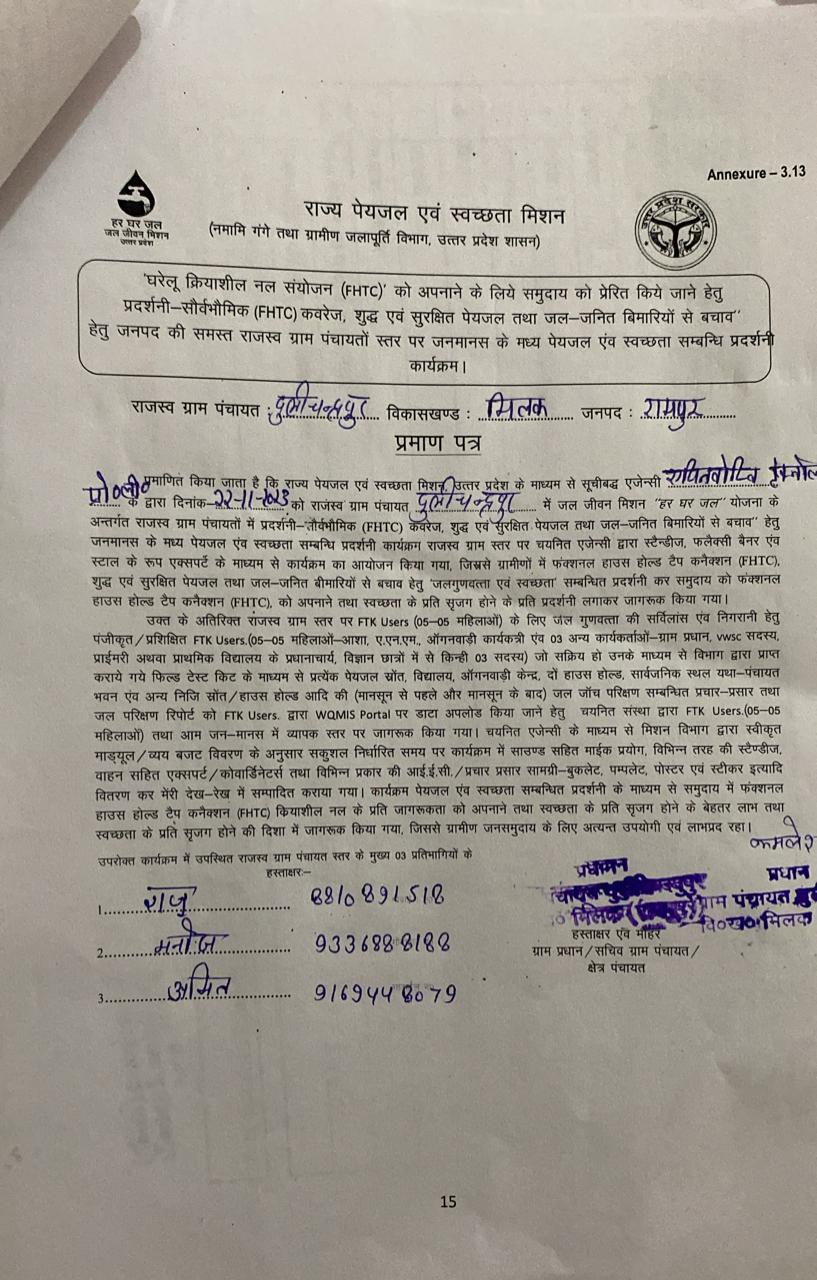 Annexure – 3.13
हर घर जल
जल जीवन मिशन
उत्तर प्रदेश
राज्य पेयजल एवं स्वच्छता मिशन
(नमामि गंगे तथा ग्रामीण जलापूर्ति विभाग, उत्तर प्रदेश शासन)
उत्तर प्रदेश सरकार
'घरेलू क्रियाशील नल संयोजन (FHTC)' को अपनाने के लिये समुदाय को प्रेरित किये जाने हेतु
प्रदर्शनी–सौर्वभौमिक (FHTC) कवरेज, शुद्ध एवं सुरक्षित पेयजल तथा जल–जनित बिमारियों से बचाव''
हेतु जनपद की समस्त राजस्व ग्राम पंचायतों स्तर पर जनमानस के मध्य पेयजल एंव स्वच्छता सम्बन्धि प्रदर्शनी
कार्यक्रम।
राजस्व ग्राम पंचायत : विकासखण्ड : मिलक जनपद : रामपुर
प्रमाण पत्र
प्रमाणित किया जाता है कि राज्य पेयजल एवं स्वच्छता मिशन, उत्तर प्रदेश के माध्यम से सूचीबद्ध एजेन्सी
प्रा०ली० के द्वारा दिनांक–22-11-2023 को राजस्व ग्राम पंचायत में जल जीवन मिशन "हर घर जल" योजना के
अन्तर्गत राजस्व ग्राम पंचायतों में प्रदर्शनी–सौर्वभौमिक (FHTC) कवरेज, शुद्ध एवं सुरक्षित पेयजल तथा जल–जनित बिमारियों से बचाव'' हेतु
जनमानस के मध्य पेयजल एंव स्वच्छता सम्बन्धि प्रदर्शनी कार्यक्रग राजस्व ग्राम स्तर पर चयनित एजेन्सी द्वारा स्टैन्डीज, फलैक्सी बैनर एंव
स्टाल के रूप एक्सपर्टे के माध्यम से कार्यक्रम का आयोजन किया गया, जिससे ग्रामीणों में फंक्शनल हाउस होल्ड टैप कनैक्शन (FHTC),
शुद्ध एवं सुरक्षित पेयजल तथा जल–जनित बीमारियों से बचाव हेतु 'जलगुणवत्ता एवं स्वच्छता' सम्बन्धित प्रदर्शनी कर समुदाय को फंक्शनल
हाउस होल्ड टैप कनैक्शन (FHTC), को अपनाने तथा स्वच्छता के प्रति सृजग होने के प्रति प्रदर्शनी लगाकर जागरूक किया गया।
उक्त के अतिरिक्त राजस्व ग्राम स्तर पर FTK Users (05–05 महिलाओं) के लिए जल गुणवत्ता की सर्विलांस एंव निगरानी हेतु
पंजीकृत/प्रशिक्षित FTK Users.(05–05 महिलाओं–आशा, ए.ए.न.म., ऑगनवाड़ी कार्यकत्री एंव 03 अन्य कार्यकर्ताओं–ग्राम प्रधान, vwsc सदस्य,
प्राईमरी अथवा प्राथमिक विद्यालय के प्रधानाचार्य, विज्ञान छात्रों में से किन्ही 03 सदस्य) जो सक्रिय हो उनके माध्यम से विभाग द्वारा प्राप्त
कराये गये फिल्ड टेस्ट किट के माध्यम से प्रत्येक पेयजल स्रोंत, विद्यालय, ऑगनवाड़ी केन्द्र, दों हाउस होल्ड, सार्वजनिक स्थल यथा–पंचायत
भवन एंव अन्य निजि स्रोंत/हाउस होल्ड आदि की (मानसून से पहले और मानसून के बाद) जल जॉच परिक्षण सम्बन्धित प्रचार–प्रसार तथा
जल परिक्षण रिपोर्ट को FTK Users. द्वारा WQMIS Portal पर डाटा अपलोड किया जाने हेतु चयनित संस्था द्वारा FTK Users.(05–05
महिलाओं) तथा आम जन–मानस में व्यापक स्तर पर जागरूक किया गया। चयनित एजेन्सी के माध्यम से मिशन विभाग द्वारा स्वीकृत
माड्यूल/व्यय बजट विवरण के अनुसार सकुशल निर्धारित समय पर कार्यक्रम में साउण्ड सहित माईक प्रयोग, विभिन्न तरह की स्टैण्डीज,
वाहन सहित एक्सपर्ट/कोवार्डिनेटर्स तथा विभिन्न प्रकार की आई.ई.सी./प्रचार प्रसार सामग्री–बुकलेट, पम्पलेट, पोस्टर एवं स्टीकर इत्यादि
वितरण कर मेंरी देख–रेख में सम्पादित कराया गया। कार्यक्रम पेयजल एंव स्वच्छता सम्बन्धित प्रदर्शनी के माध्यम से समुदाय में फंक्शनल
हाउस होल्ड टैप कनैक्शन (FHTC) कियाशील नल के प्रति जागरूकता को अपनाने तथा स्वच्छता के प्रति सृजग होने के बेहतर लाभ तथा
स्वच्छता के प्रति सृजग होने की दिशा में जागरूक किया गया, जिससे ग्रामीण जनसमुदाय के लिए अत्यन्त उपयोगी एवं लाभप्रद रहा।
कमलेश
उपरोक्त कार्यक्रम में उपस्थित राजस्व ग्राम पंचायत स्तर के मुख्य 03 प्रतिभागियों के
हस्ताक्षरः–
प्रधान
ग्राम पंचायत
वि०ख० मिलक
1. राजु 8810891518
हस्ताक्षर एंव मोहर
2. मनोज 9336888188
ग्राम प्रधान/सचिव ग्राम पंचायत/
क्षेत्र पंचायत
3. अमित 9169448079
15